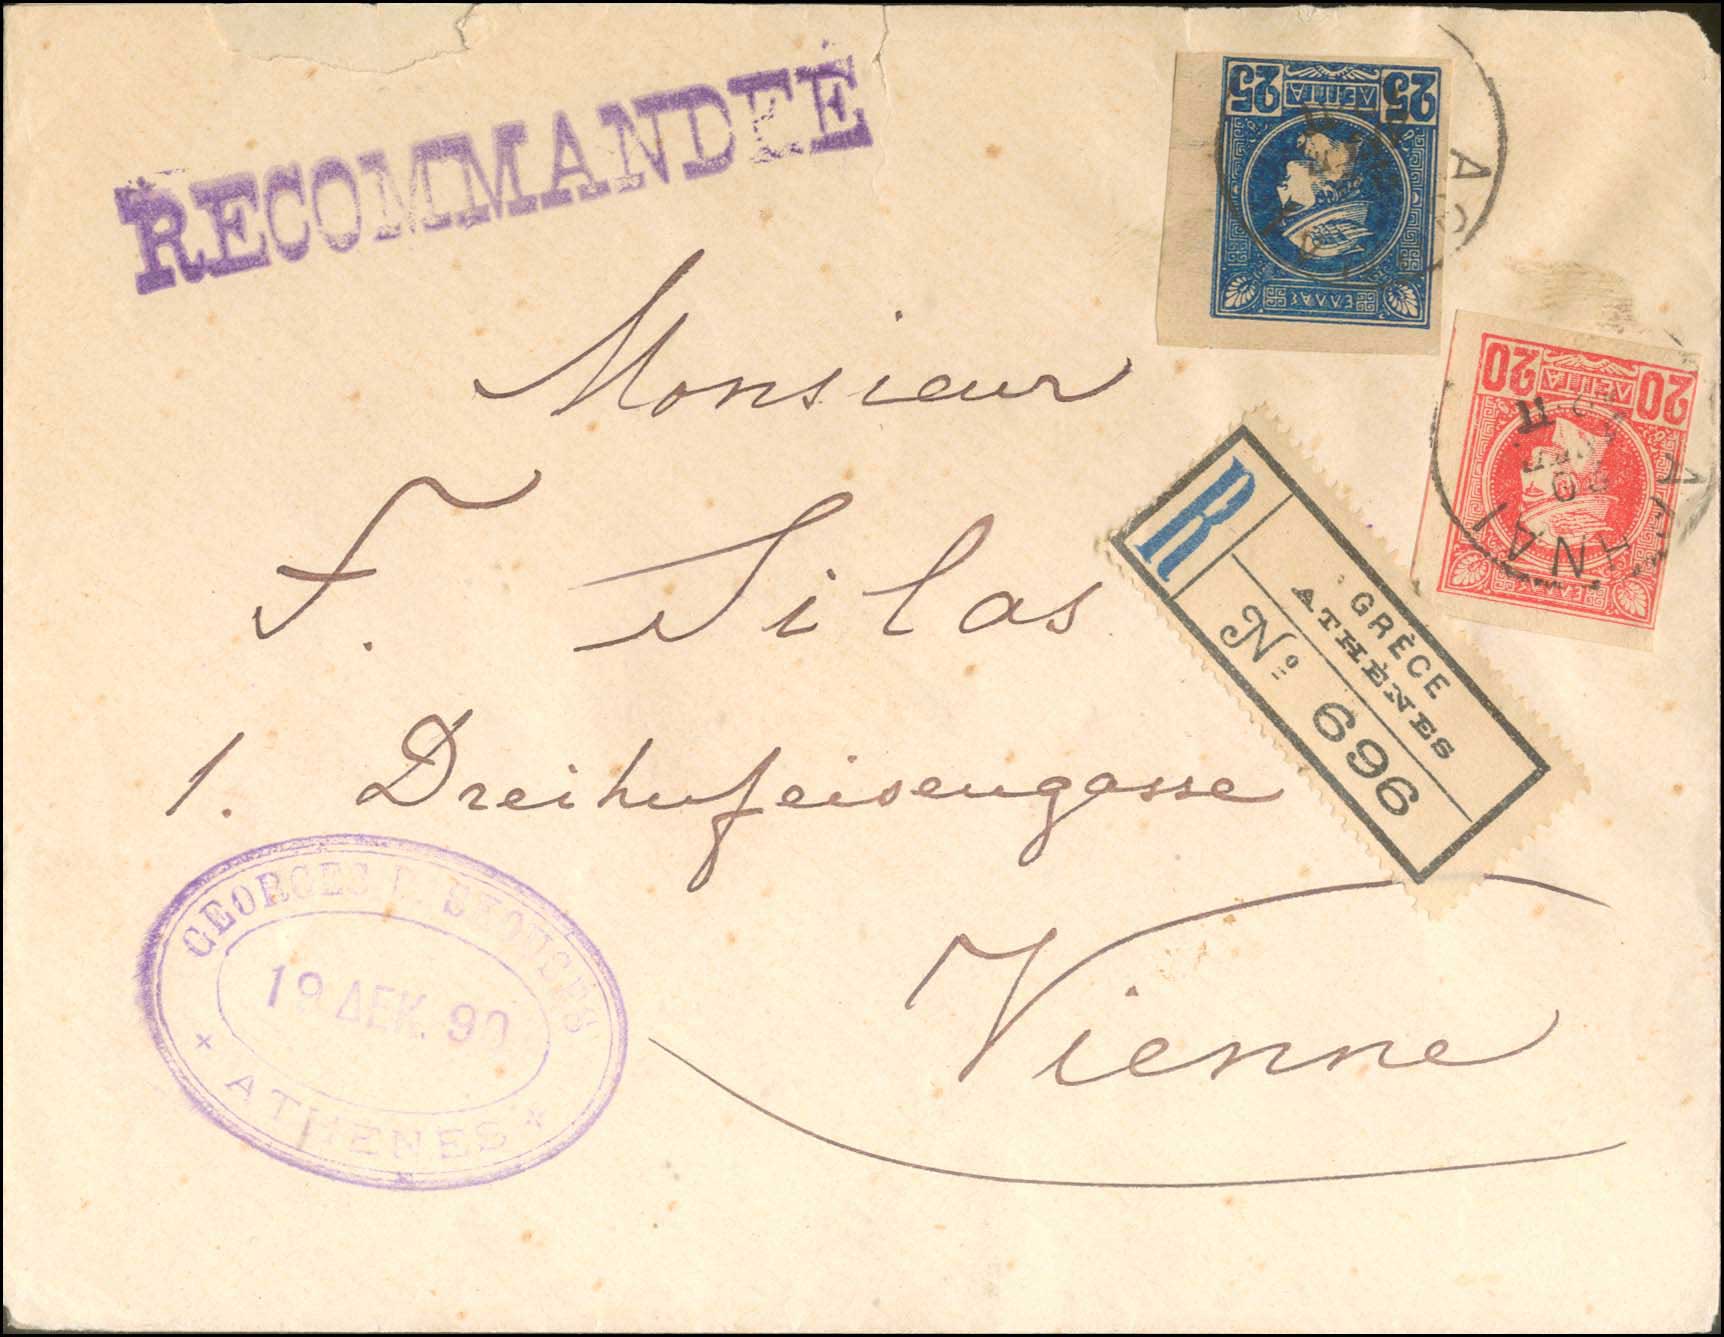 RECOMMANDÉE
25 ΛΕΠΤΑ 25
ΕΛΛΑΣ
20 ΛΕΠΤΑ 20
ΕΛΛΑΣ
ΑΘΗΝΑΙ
Monsieur
F. Silas
1. Dreihufeisengasse
Vienne
R
GRÈCE
ATHÈNES
No 696
GEORGES P. SKOUSÈS
19 ΔΕΚ. 90
ATHÈNES